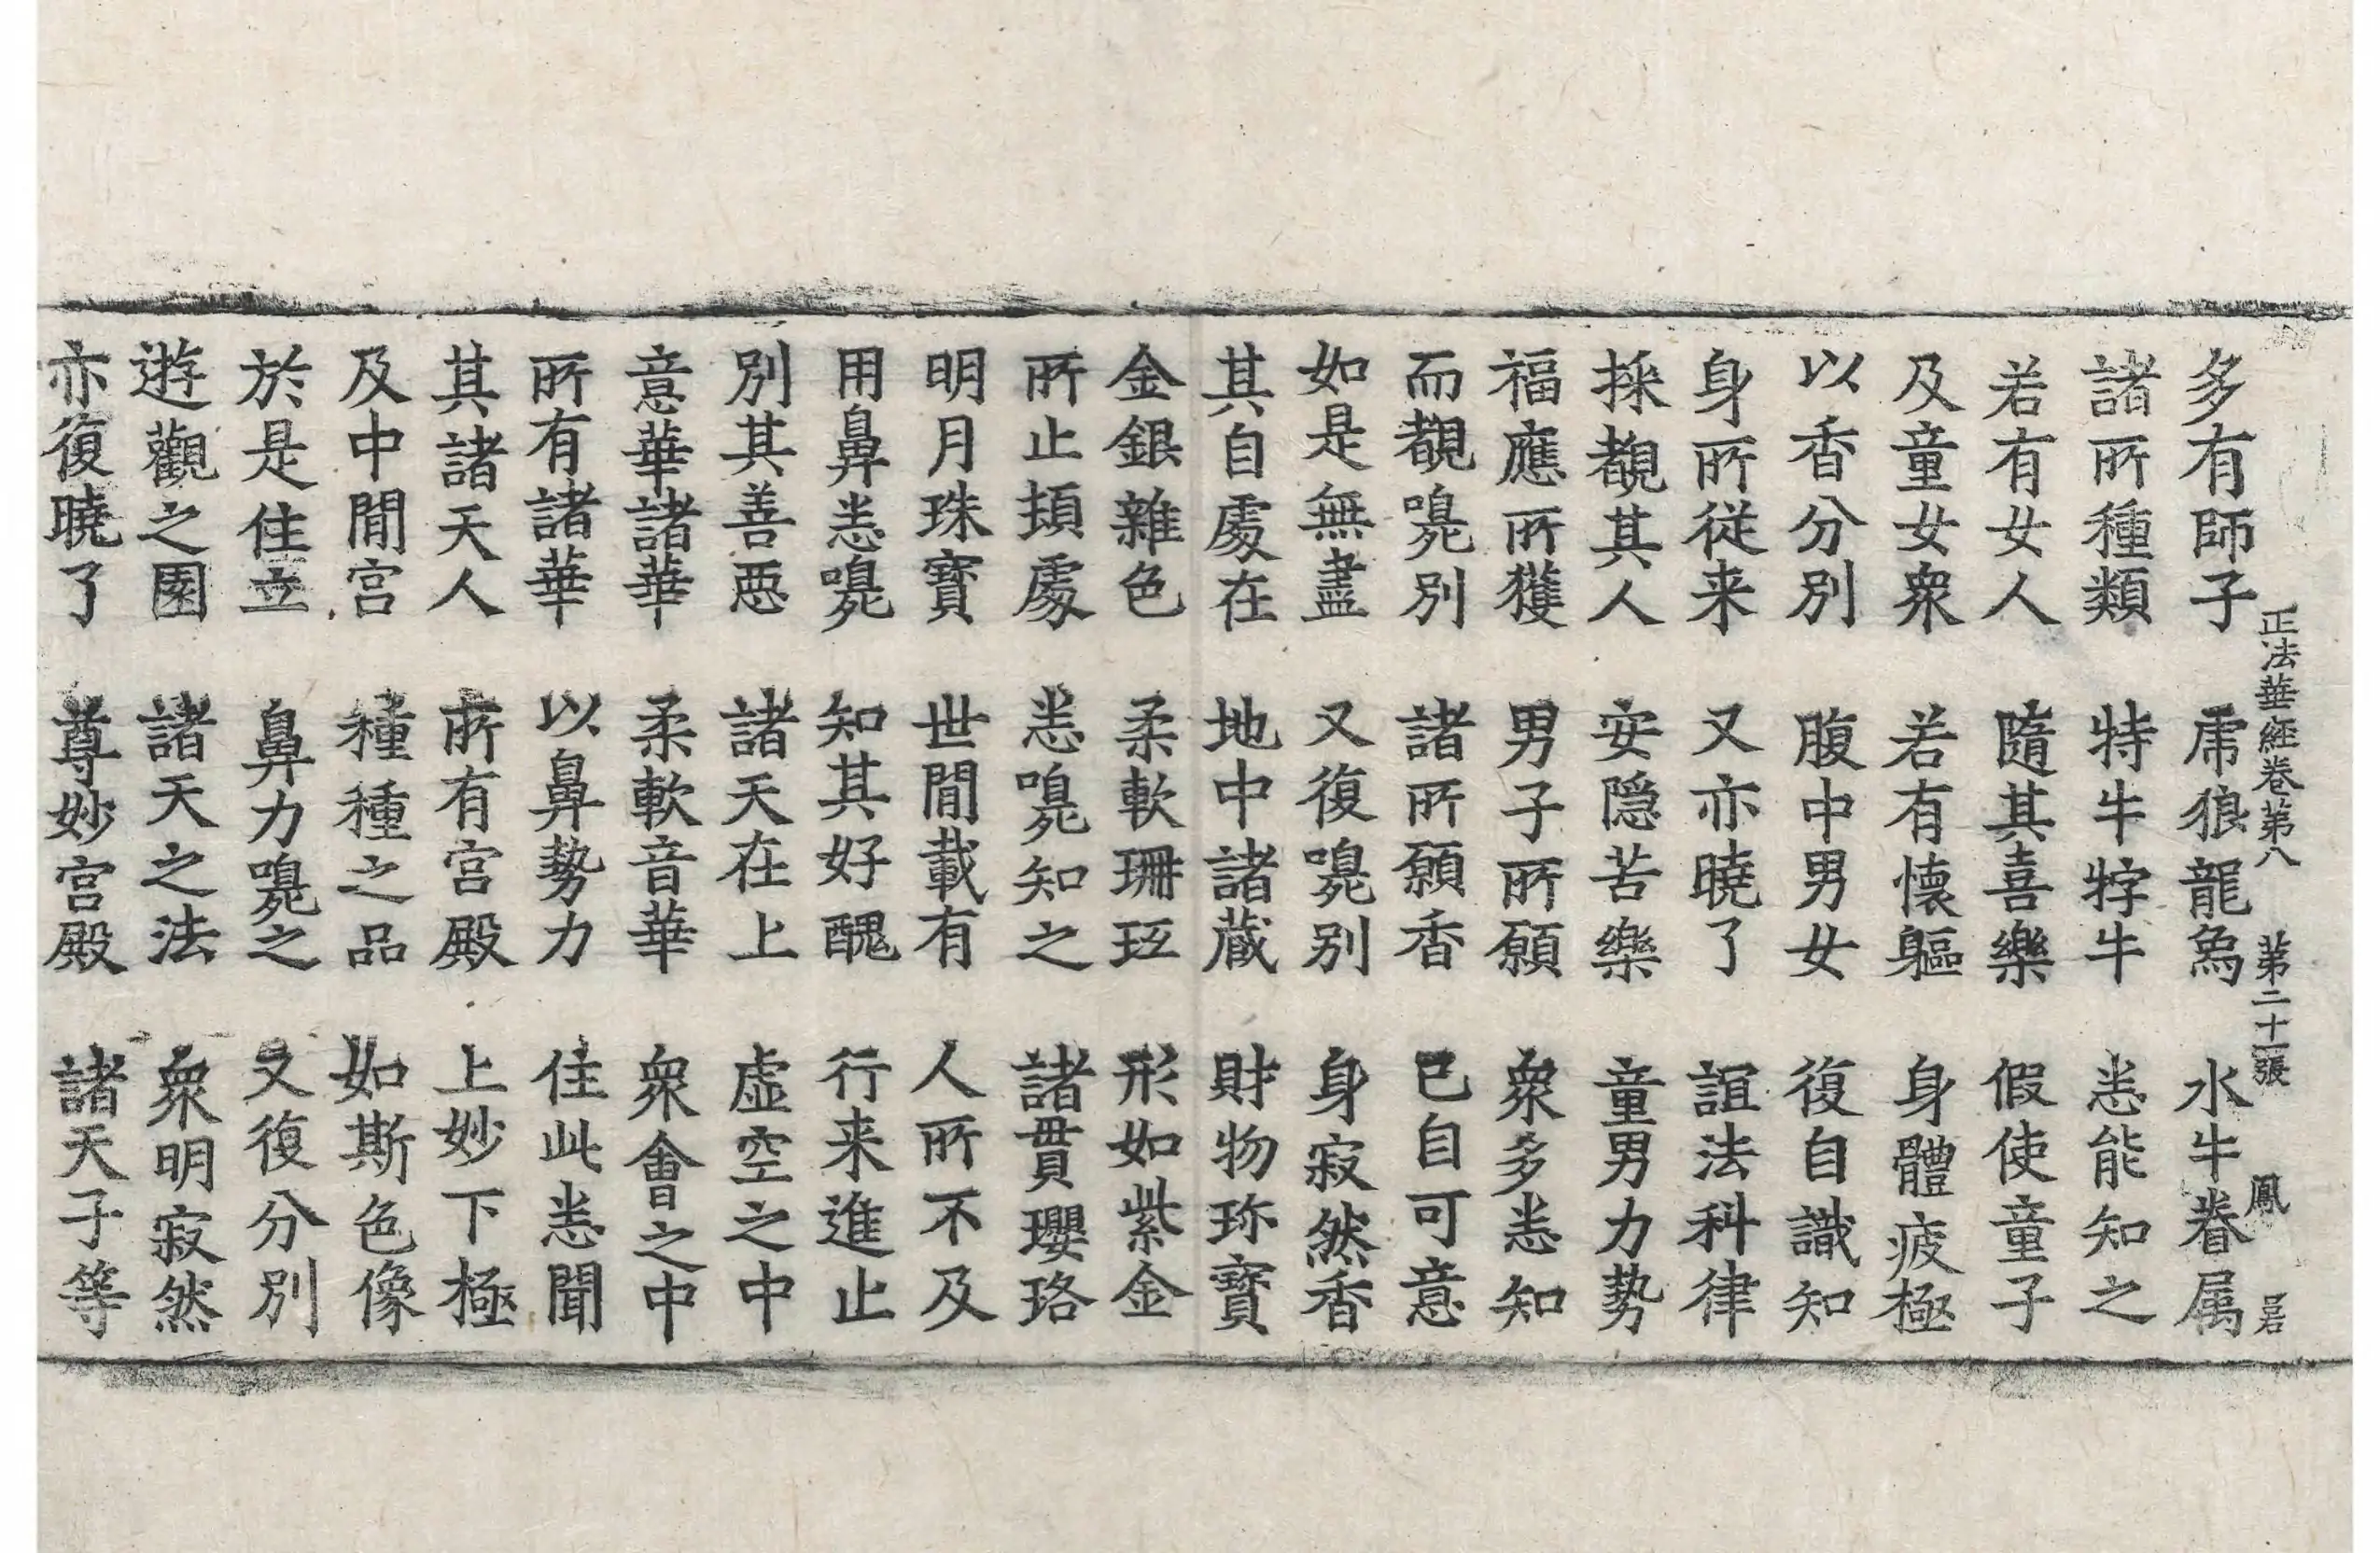 正法華經卷第八 第二十一張 鳳 呂
多有師子 虎狼龍鳥 水牛眷属
諸所種類 特牛牸牛 悉能知之
若有女人 隨其喜樂 假使童子
及童女衆 若有懷軀 身體疲極
以香分別 腹中男女 復自識知
身所従来 又亦曉了 誼法科律
採覩其人 安隠苦樂 童男力勢
福應所獲 男子所願 衆多悉知
而覩嗅別 諸所願香 已自可意
如是無盡 又復嗅別 身寂然香
其自處在 地中諸蔵 財物珎寶
金銀雜色 柔軟珊 形如紫金
所止頓處 悉嗅知之 諸貫瓔珞
明月珠寶 世間載有 人所不及
用鼻悉嗅 知其好醜 行来進止
別其善惡 諸天在上 虚空之中
意華諸華 柔軟音華 衆會之中
所有諸華 以鼻勢力 住此悉聞
其諸天人 所有宮殿 上妙下極
及中間宮 種種之品 如斯色像
於是住立 鼻力嗅之 又復分別
遊觀之園 諸天之法 衆明寂然
亦復曉了 尊妙宮殿 諸天子等